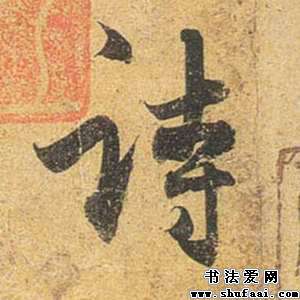 诗
书法爱网
www.shufaai.com